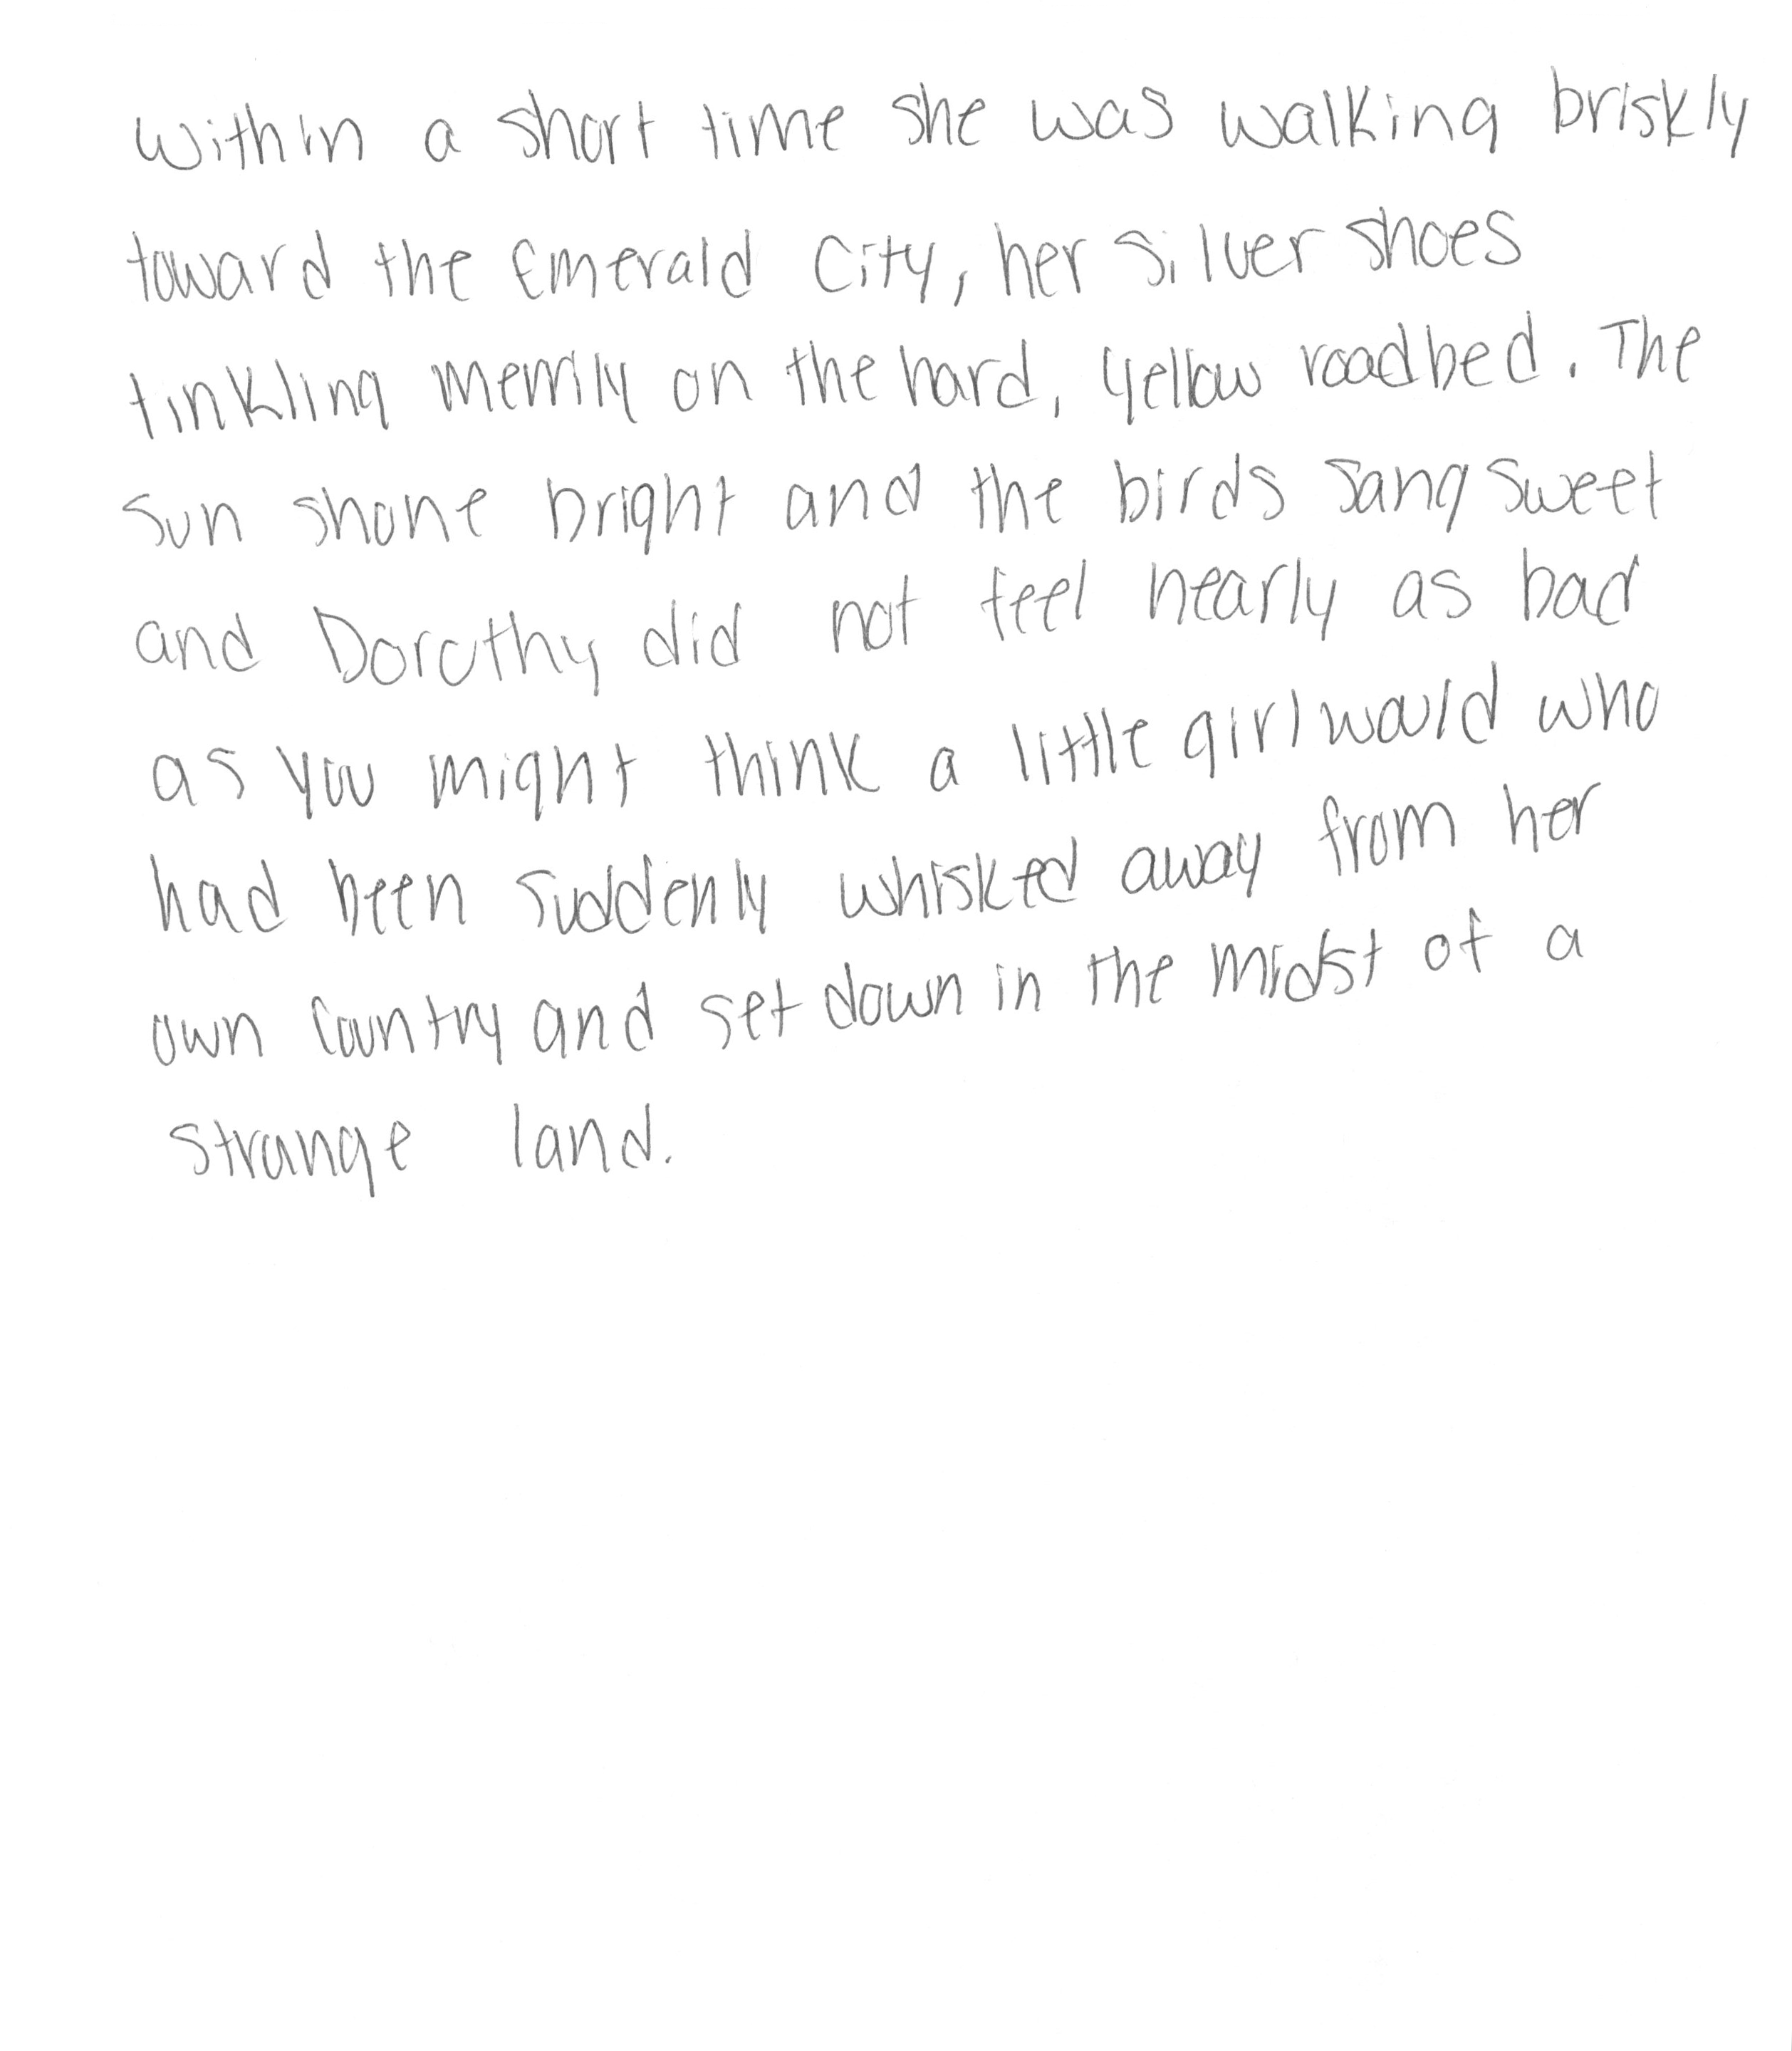 within a short time she was walking briskly
toward the Emerald City, her silver shoes
tinkling merrily on the hard, yellow roadbed. The
sun shone bright and the birds sang sweet
and Dorothy did not feel nearly as bad
as you might think a little girl would who
had been suddenly whisked away from her
own country and set down in the midst of a
strange land.